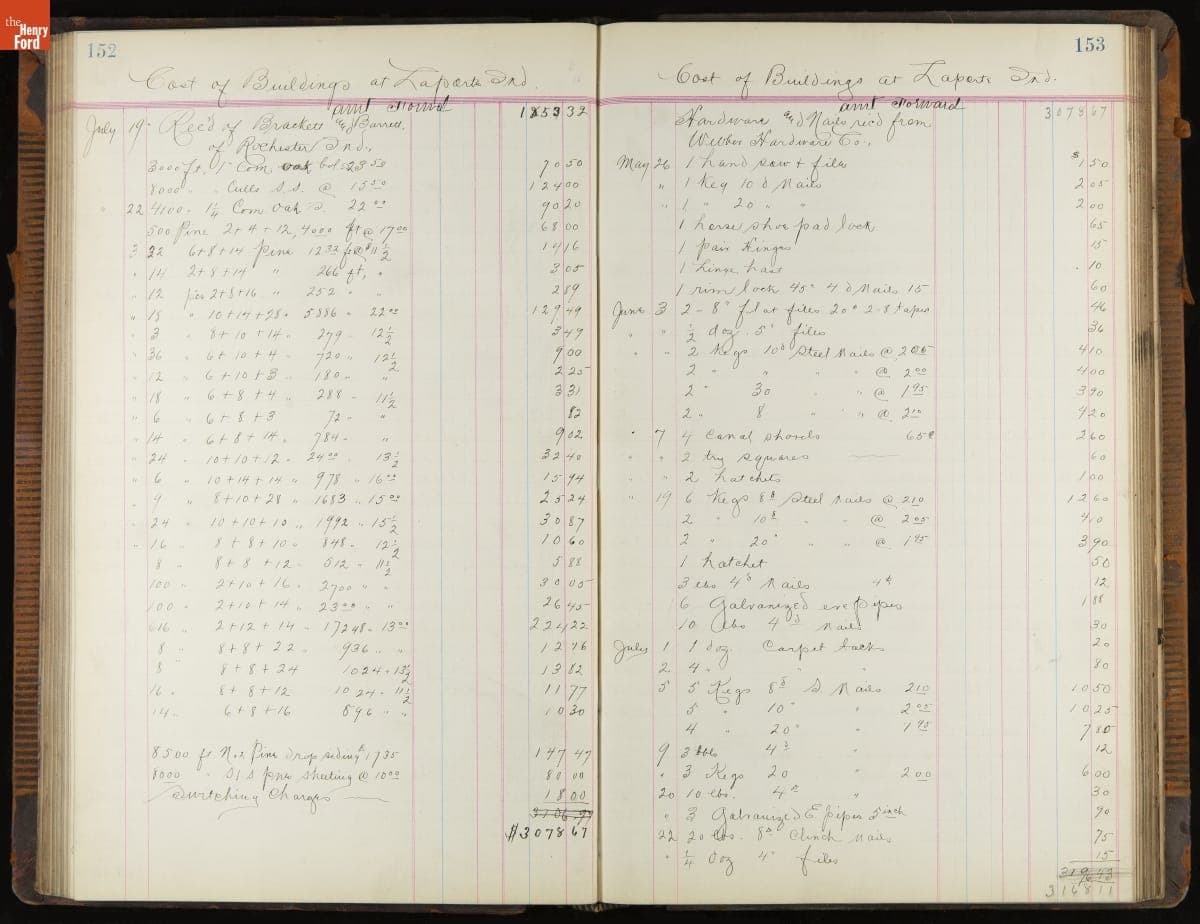 the Henry Ford
152
Cost of Buildings at Laporte Ind.
amt Forwd 1853 32
July 19 Rec'd of Brackett and Barrett
of Rochester Ind.,
3000 ft. 1" Com oak bds 23 50 70 50
8000 " " Culls S.S. @ 15 50 124 00
" 22 4100 " 1 1/4 Com Oak S. 22 00 90 20
500 Pine 2+4+12, 4000 ft @ 17 00 68 00
3 22 6+8+14 Pine 1232 ft @ $11 1/2 14 16
" 14 2+8+14 " 266 ft, " 3 05
" 12 pcs 2+8+16 " 252 " " 2 89
" 18 " 10+14+28 " 5886 " 22 00 129 49
" 3 " 8+10+14 " 279 " 12 1/2 3 49
" 36 " 6+10+4 " 720 " 12 1/2 9 00
" 12 " 6+10+3 " 180 " " 2 25
" 18 " 6+8+4 " 288 " 11 1/2 3 31
" 6 " 6+8+3 72 " " 82
" 14 " 6+8+14 " 784 " " 9 02
" 24 " 10+10+12 " 2400 " 13 1/2 32 40
" 6 " 10+14+14 " 978 " 16 00 15 94
" 9 " 8+10+28 " 1683 " 15 00 25 24
" 24 " 10+10+10 " 1992 " 15 1/2 30 87
" 16 " 8+8+10 " 848 " 12 1/2 10 60
8 " 8+8+12 " 512 " 11 1/2 5 88
100 " 2+10+16 " 2700 " " 30 05
100 " 2+10+14 " 2300 " " 26 45
616 " 2+12+14 " 17248 " 13 00 224 22
8 " 8+8+22 " 936 " " 12 76
8 " 8+8+24 1024 " 13 1/2 13 82
16 " 8+8+12 1024 " 11 1/2 11 77
14 " 6+8+16 896 " " 10 30
8500 ft No 2 Pine drop siding $17 35 147 47
8000 " S1S pine sheeting @ 10 00 80 00
Switching Charges 18 00
$3078 67
153
Cost of Buildings at Laporte Ind.
amt Forward 3078 67
Hardware and Nails rec'd from
Webber Hardware Co.,
May 26 1 hand saw + files $1 50
" 1 Keg 10 d Nails 2 05
" " 1 " 20 " " 2 00
1 horse shoe pad lock 65
1 pair Hinges 15
1 hinge hasp 10
1 rim lock 45¢ 4 d Nails 15 60
June 3 2 - 8" flat files 20¢ 2-8 taper 46
" " 1/2 doz. 5" files 36
" " 2 Kegs 10d Steel Nails @ 2 05 4 10
2 " " " " @ 2 00 4 00
2 " 30 " " @ 1 95 3 90
2 " 8 " " @ 2 10 4 20
" 7 4 Canal shovels 65¢ 2 60
" " 2 try squares 60
" " 2 hatchets 1 00
" 19 6 Kegs 8d Steel nails @ 2 10 12 60
2 " 10d " " @ 2 05 4 10
2 " 20d " " @ 1 95 3 90
1 hatchet 50
3 lbs 4d Nails 4¢ 12
6 Galvanized eve pipes 1 88
10 lbs 4d Nails 30
July 1 1 doz. Carpet tacks 20
2 4 " " " 80
5 5 Kegs 8d S. Nails 2 10 10 50
5 " 10 " " 2 05 10 25
4 " 20 " " 1 95 7 80
9 3 lbs 4d " 12
" 3 Kegs 20 " 2 00 6 00
20 10 lbs. 4d " 30
" 3 Galvanized E. pipes 5 inch 90
22 20 lbs. 8d Clinch Nails 75
" 1/4 doz 4" files 15
3168 11